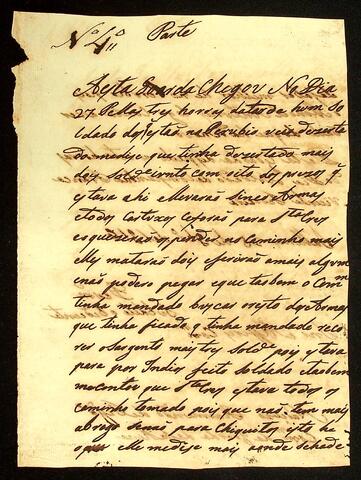 Nº 4"
Parte
Aesta Goarda Chegou No Dia
27 Pellas tres horas datarde hum So
ldado destes na
do medise que tinha dezertado mais
dois Sold.os junto com oito dos prezos q
estava ahi Mevarão sinco Armas
etodos Cartuxos eforão para S.ta Cruz
equizerão os pender no caminho mais
elles matarão dois eferirão amais algum
enão podero pegar eque tãobem o Com.te
tinha mandado buscar oresto das Armas
que tinha ficado q tinha mandado reco
rer oSargento mais tres Sold.os pois estava
para por Indios feito Soldado etãobem
me contou que S.ta Cruz estava todos os
caminho tomado pois que não tem mais
abrigo senão para Chiquitos isto he
oque elle medise mais aonde Sehade